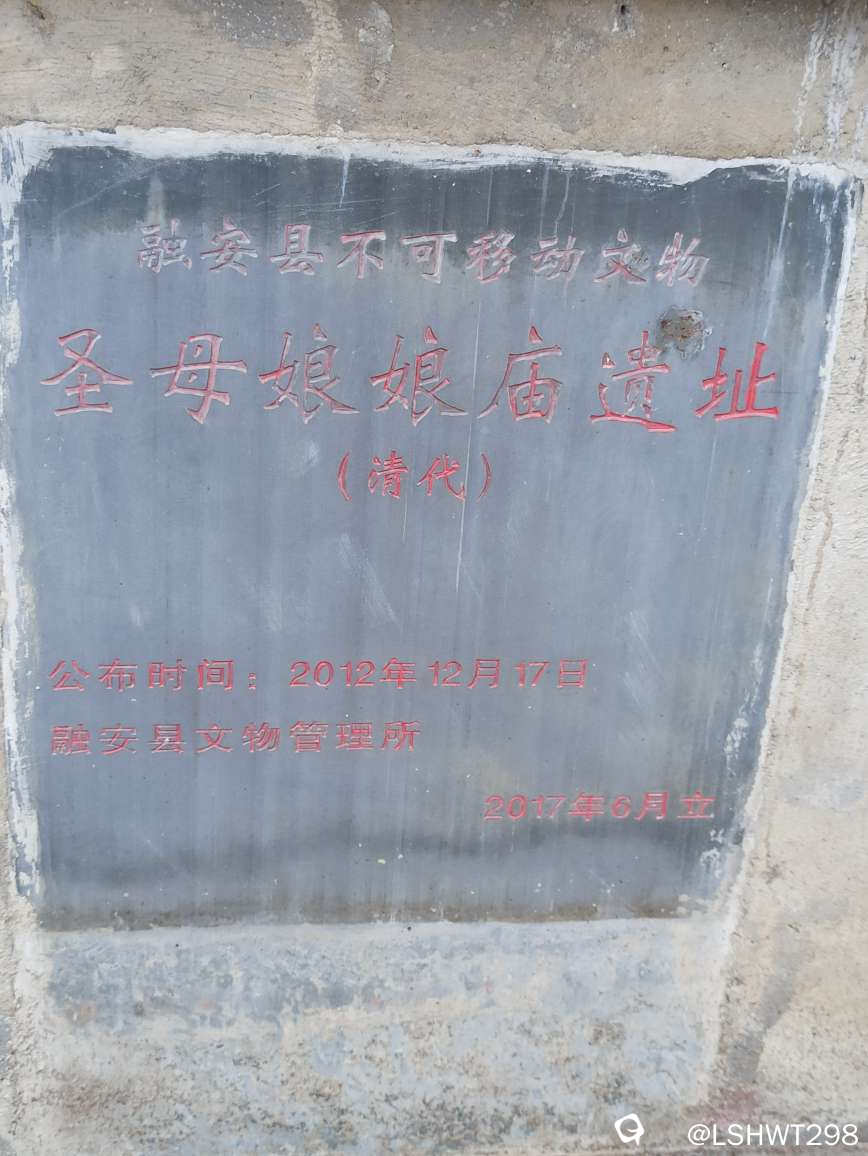 融安县不可移动文物
圣母娘娘庙遗址
（清代）
公布时间：2012年12月17日
融安县文物管理所
2017年6月立
@LSHWT298